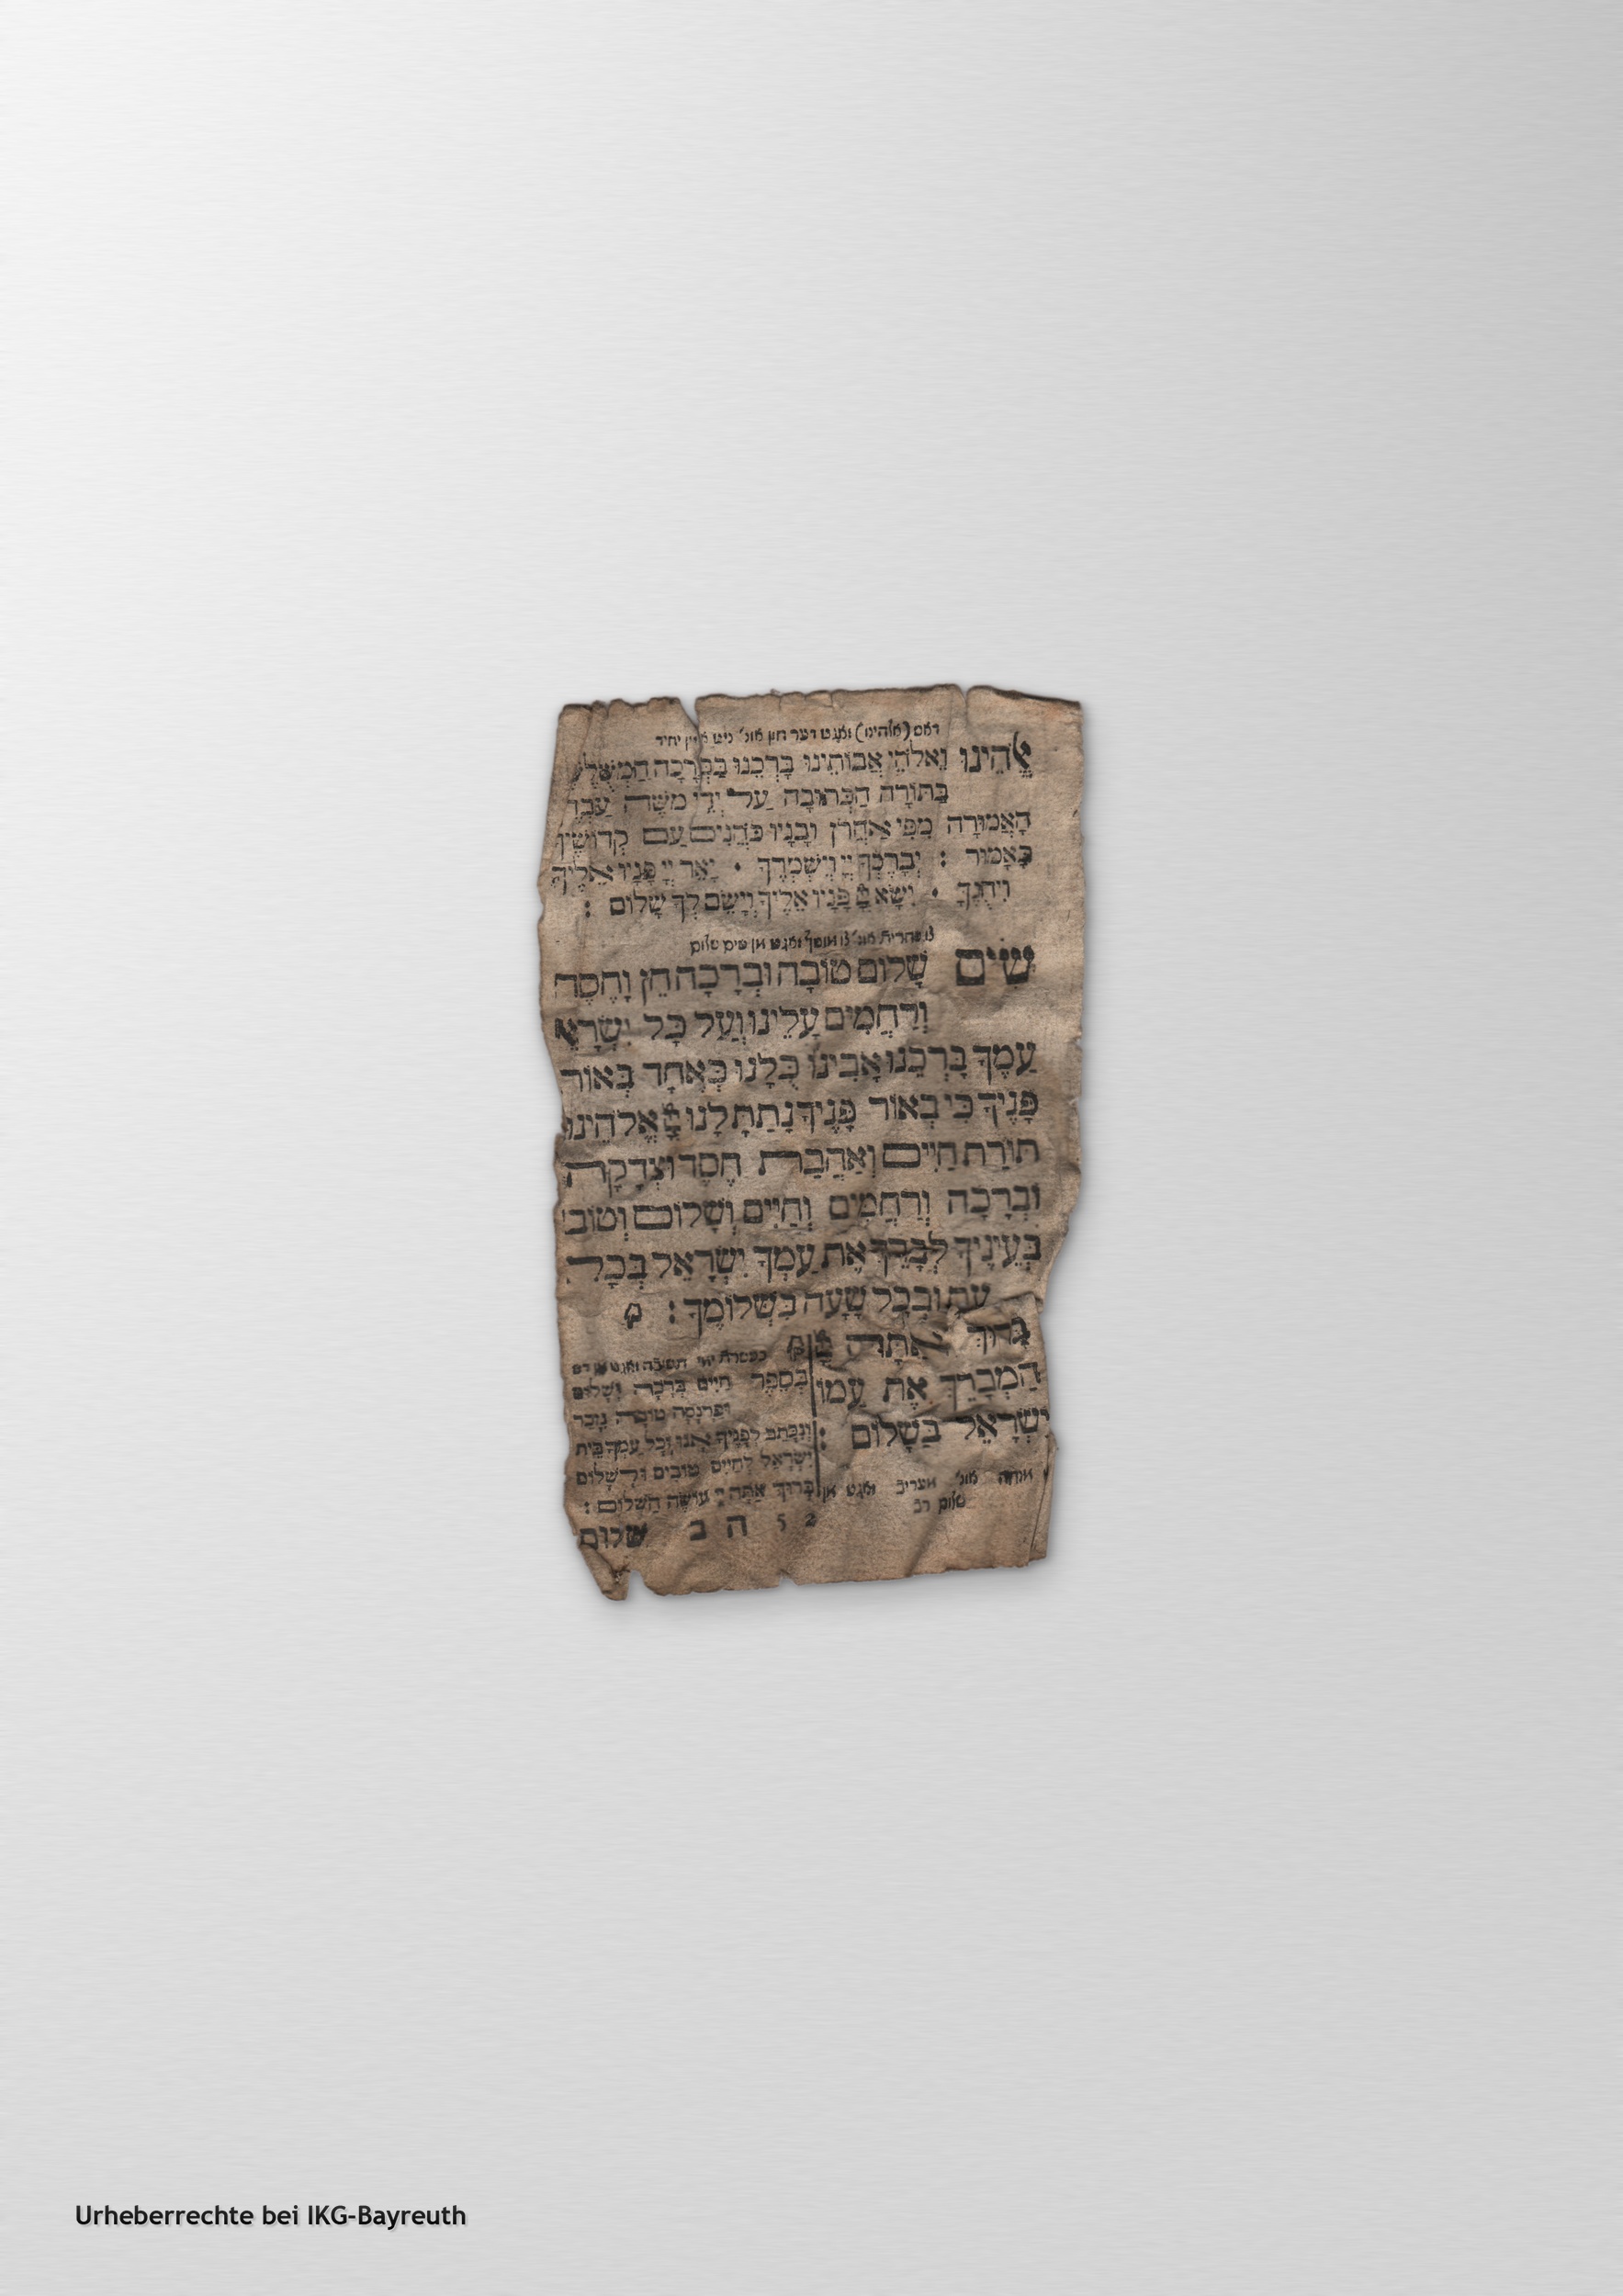 דאס (אלהינו) זאגט דער חזן אונ׳ ניט איין יחיד
אֱלֹהֵינוּ וֵאלֹהֵי אֲבוֹתֵינוּ בָּרְכֵנוּ בַּבְּרָכָה הַמְשֻׁלֶּשֶׁ
בַּתּוֹרָה הַכְּתוּבָה עַל יְדֵי מֹשֶׁה עַבְדֶ
הָאֲמוּרָה מִפִּי אַהֲרֹן וּבָנָיו כֹּהֲנִים עַם קְדוֹשֶׁיךָ
כָּאָמוּר : יְבָרֶכְךָ יְיָ וְיִשְׁמְרֶךָ • יָאֵר יְיָ פָּנָיו אֵלֶיךָ
וִיחֻנֶּךָּ • יִשָּׂא יְיָ פָּנָיו אֵלֶיךָ וְיָשֵׂם לְךָ שָׁלוֹם :
צו שחרית אונ׳ צו מוסף זאגט מן שים שלום
שִׂים שָׁלוֹם טוֹבָה וּבְרָכָה חֵן וָחֶסֶד
וְרַחֲמִים עָלֵינוּ וְעַל כָּל יִשְׂרָאֵ
עַמֶּךָ בָּרְכֵנוּ אָבִינוּ כֻּלָּנוּ כְּאֶחָד בְּאוֹר
פָּנֶיךָ כִּי בְאוֹר פָּנֶיךָ נָתַתָּ לָּנוּ יְיָ אֱלֹהֵינוּ
תּוֹרַת חַיִּים וְאַהֲבַת חֶסֶד וּצְדָקָה
וּבְרָכָה וְרַחֲמִים וְחַיִּים וְשָׁלוֹם וְטוֹב
בְּעֵינֶיךָ לְבָרֵךְ אֶת עַמְּךָ יִשְׂרָאֵל בְּכָל
עֵת וּבְכָל שָׁעָה בִּשְׁלוֹמֶךָ :
בָּרוּךְ אַתָּה יְיָ
הַמְבָרֵךְ אֶת עַמּוֹ
יִשְׂרָאֵל בַּשָּׁלוֹם :
מנחה אונ׳ מעריב זאגט מן
שלום רב
בעשרת ימי תשובה זאגט מן דס
בְּסֵפֶר חַיִּים בְּרָכָה וְשָׁלוֹם
וּפַרְנָסָה טוֹבָה נִזָּכֵר
וְנִכָּתֵב לְפָנֶיךָ אָנוּ וְכָל עַמְּךָ בֵּית
יִשְׂרָאֵל לְחַיִּים טוֹבִים וּלְשָׁלוֹם
בָּרוּךְ אַתָּה יְיָ עוֹשֵׂה הַשָּׁלוֹם :
2 5 ה ב שלום
Urheberrechte bei IKG-Bayreuth